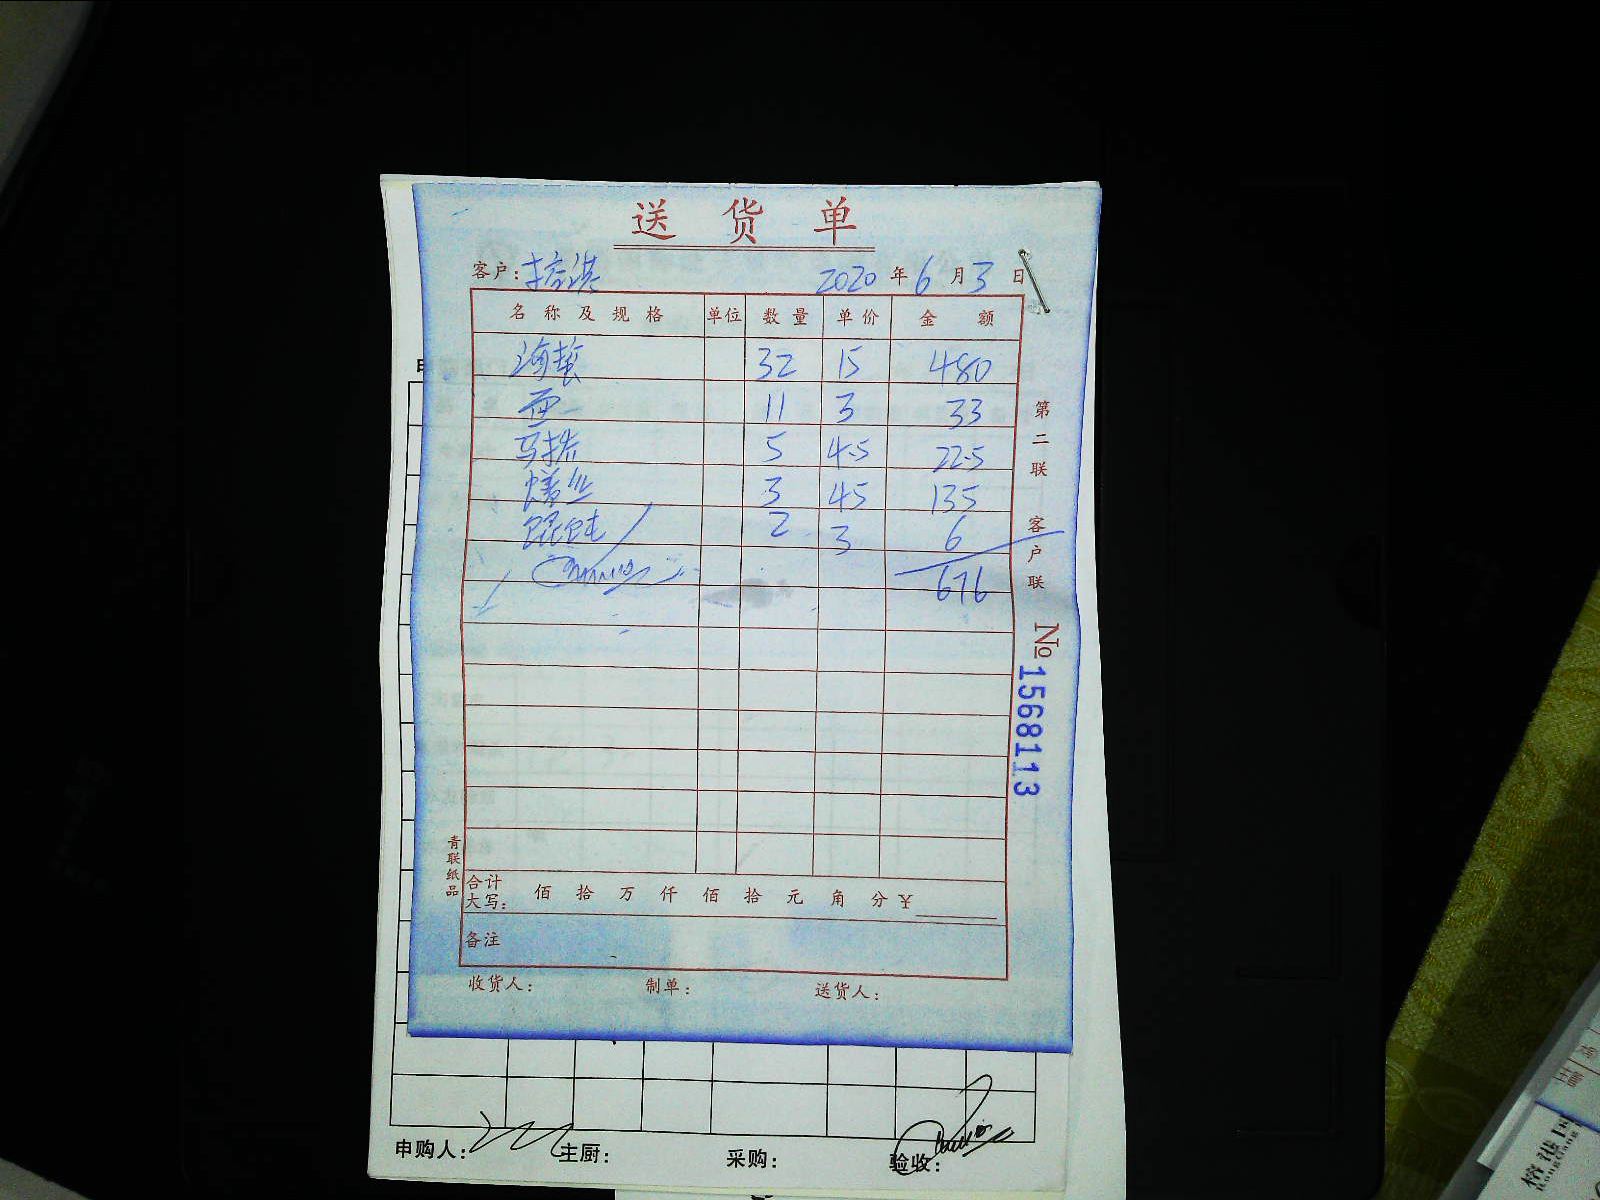 送货单
客户: 榕港 2020年6月3日
名称及规格 单位 数量 单价 金额
海蜇 32 15 480
面 11 3 33
马 5 4.5 22.5
丝 3 45 135
2 3 6
676
第二联 客户联
№1568113
青联纸品
合计大写: 佰 拾 万 仟 佰 拾 元 角 分 ¥
备注
收货人: 制单: 送货人:
申购人: 主厨: 采购: 验收:
榕港